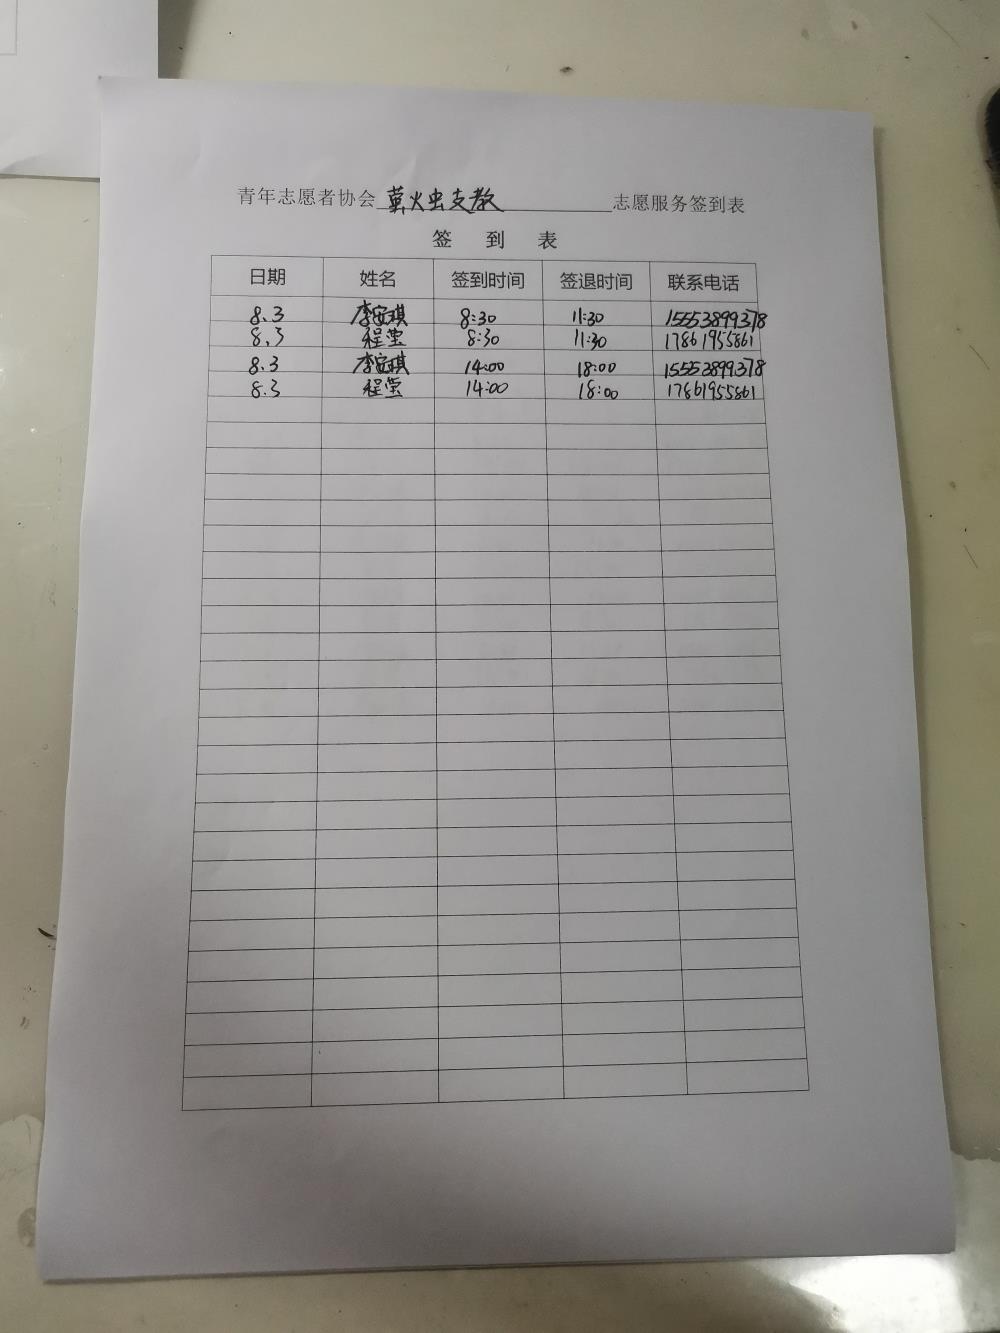 青年志愿者协会 萤火虫支教 志愿服务签到表
签 到 表
日期 姓名 签到时间 签退时间 联系电话
8.3 李安琪 8:30 11:30 15553899378
8.3 程莹 8:30 11:30 17861955861
8.3 李安琪 14:00 18:00 15553899378
8.3 程莹 14:00 18:00 17861955861